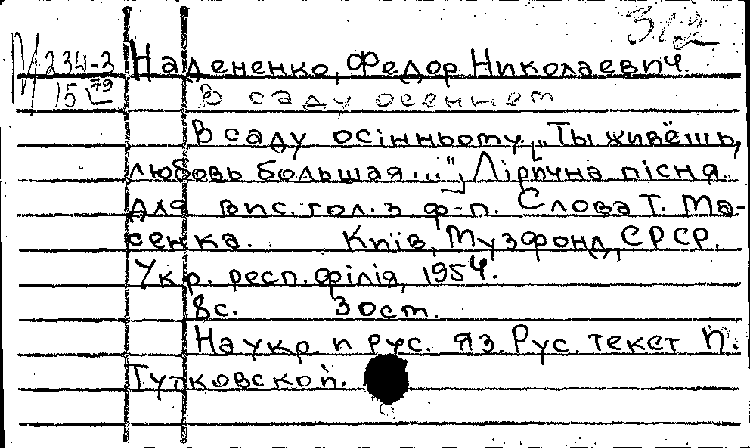 312
М 234-3 Надененко, Федор Николаевич
15 79 В саду осеннем
В саду осінньому. „Ты живёшь,
любовь большая..."; Лірична пісня
для вис. гол. з ф-п. Слова Т. Ма-
сенка. Київ, Музфонд СРСР.
Укр. респ. філія, 1954.
8с. 30 ст.
На укр. и рус. яз. Рус. текст П.
Тутковской.